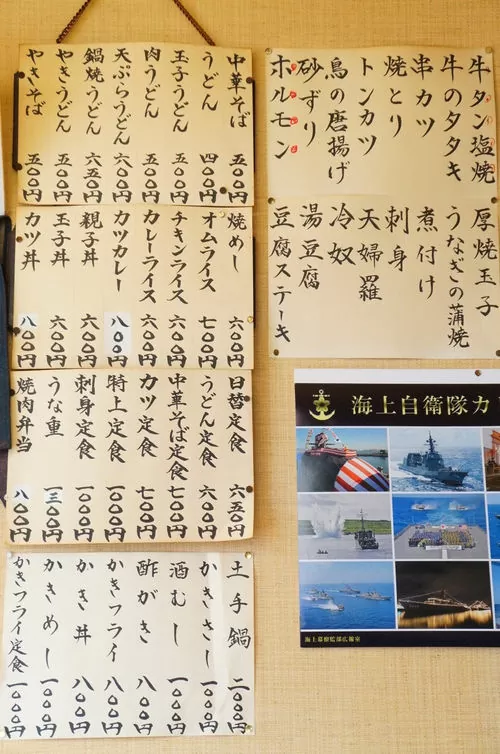 中華そば 五〇〇円
うどん 四〇〇円
玉子うどん 五〇〇円
肉うどん 五〇〇円
天ぷらうどん 六〇〇円
鍋焼うどん 六五〇円
やきうどん 五〇〇円
やきそば 五〇〇円
焼めし 六〇〇円
オムライス 七〇〇円
チキンライス 六〇〇円
カレーライス 六〇〇円
カツカレー 八〇〇円
親子丼 六〇〇円
玉子丼 六〇〇円
カツ丼 八〇〇円
日替定食 六五〇円
うどん定食 六〇〇円
中華そば定食 七〇〇円
カツ定食 七〇〇円
特上定食 一〇〇〇円
刺身定食 一〇〇〇円
うな重 一三〇〇円
焼肉弁当 八〇〇円
土手鍋 二〇〇〇円
かきさし 一〇〇〇円
酒むし 一〇〇〇円
酢がき 八〇〇円
かきフライ 八〇〇円
かき丼 八〇〇円
かきめし 一〇〇〇円
かきフライ定食 一〇〇〇円
牛タン塩焼
牛のタタキ
串カツ
焼とり
トンカツ
鳥の唐揚げ
砂ずり
ホルモン
厚焼玉子
うなぎの蒲焼
煮付け
刺身
天婦羅
冷奴
湯豆腐
豆腐ステーキ
海上自衛隊カ
海上幕僚監部広報室